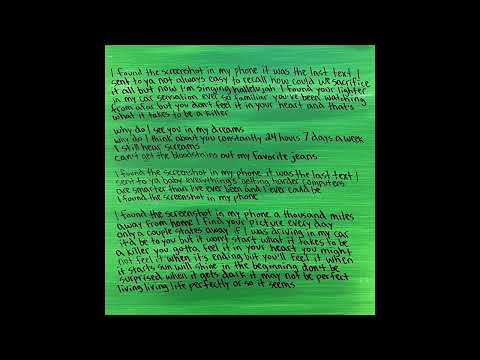 I found the screenshot in my phone it was the last text I
sent to ya not always easy to recall how could we sacrifice
it all but now I'm singing hallelujah I found your lighter
in my car sensation ever so familiar you've been watching
from afar but you don't feel it in your heart and that's
what it takes to be a killer
why do I see you in my dreams
why do I think about you constantly 24 hours 7 days a week
I still hear screams
can't get the bloodstains out my favorite jeans
I found the screenshot in my phone it was the last text I
sent to ya baby everything's getting harder computers
are smarter than I've ever been and I ever could be
I found the screenshot in my phone
I found the screenshot in my phone a thousand miles
away from home I find your picture every day
only a couple states away if I was driving in my car
it'd be to you but it won't start what it takes to be
a killer gotta feel it in your heart you might
not feel it when it's ending but you'll feel it when
it starts sun will shine in the beginning don't be
surprised when it gets dark it may not be perfect
living living life perfectly or so it seems